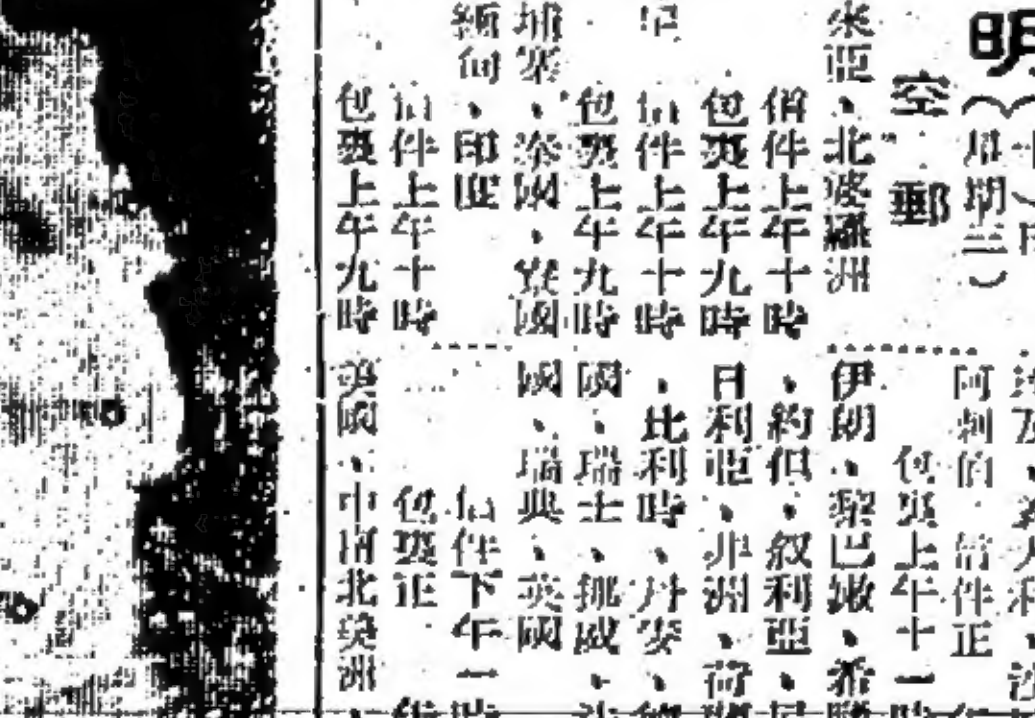 明
期三）
空郵
來亞、北婆羅洲
信件上午十時
包裹上午九時
信件上午十時
包裹上午九時
埔寨、泰國、寮國
緬甸、印度
信件上午十時
包裹上午九時
阿剌伯 信件正
包裹上午十一時
伊朗、黎巴嫩、希
、約但、叙利亞、尼
日利亞、非洲、荷
、比利時、丹麥、
國、瑞士、挪威、
國、瑞典、英國
信件下午一時
包裹正
美國、中南北美洲、